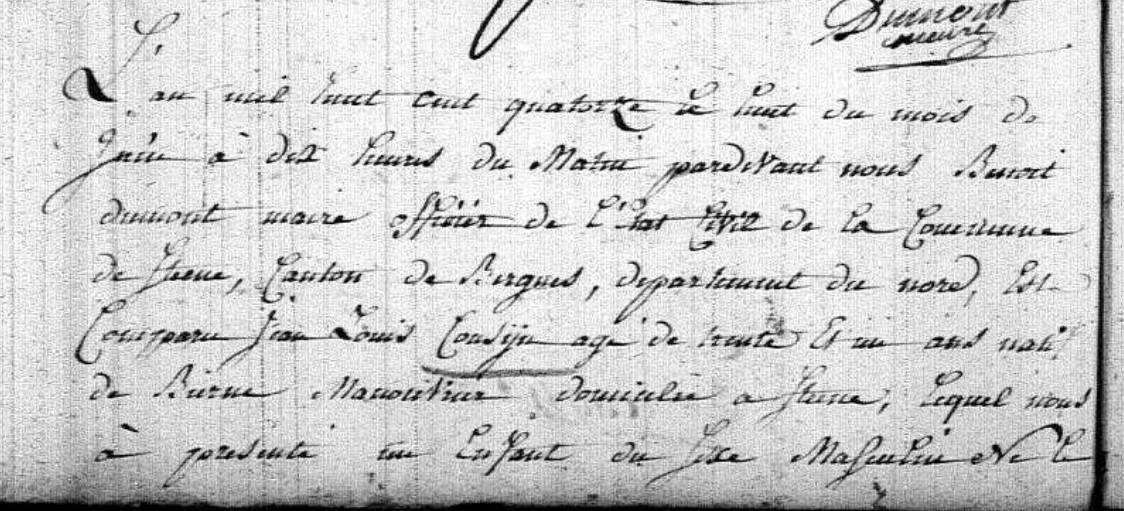 Dumont
maire
L'an mil huit cent quatorze le huit du mois de
Juin à dix heures du Matin pardevant nous Benoit
dumont maire officier de l'Etat Civil de la Commune
de Steene, Canton de Bergues, departement du nord, Est
Comparu Jean Louis Cousyn agé de trente Et un ans natif
de Bierne Manouvrier domicilié a Steene, lequel nous
à presenté un Enfant du Sexe Masculin Né le